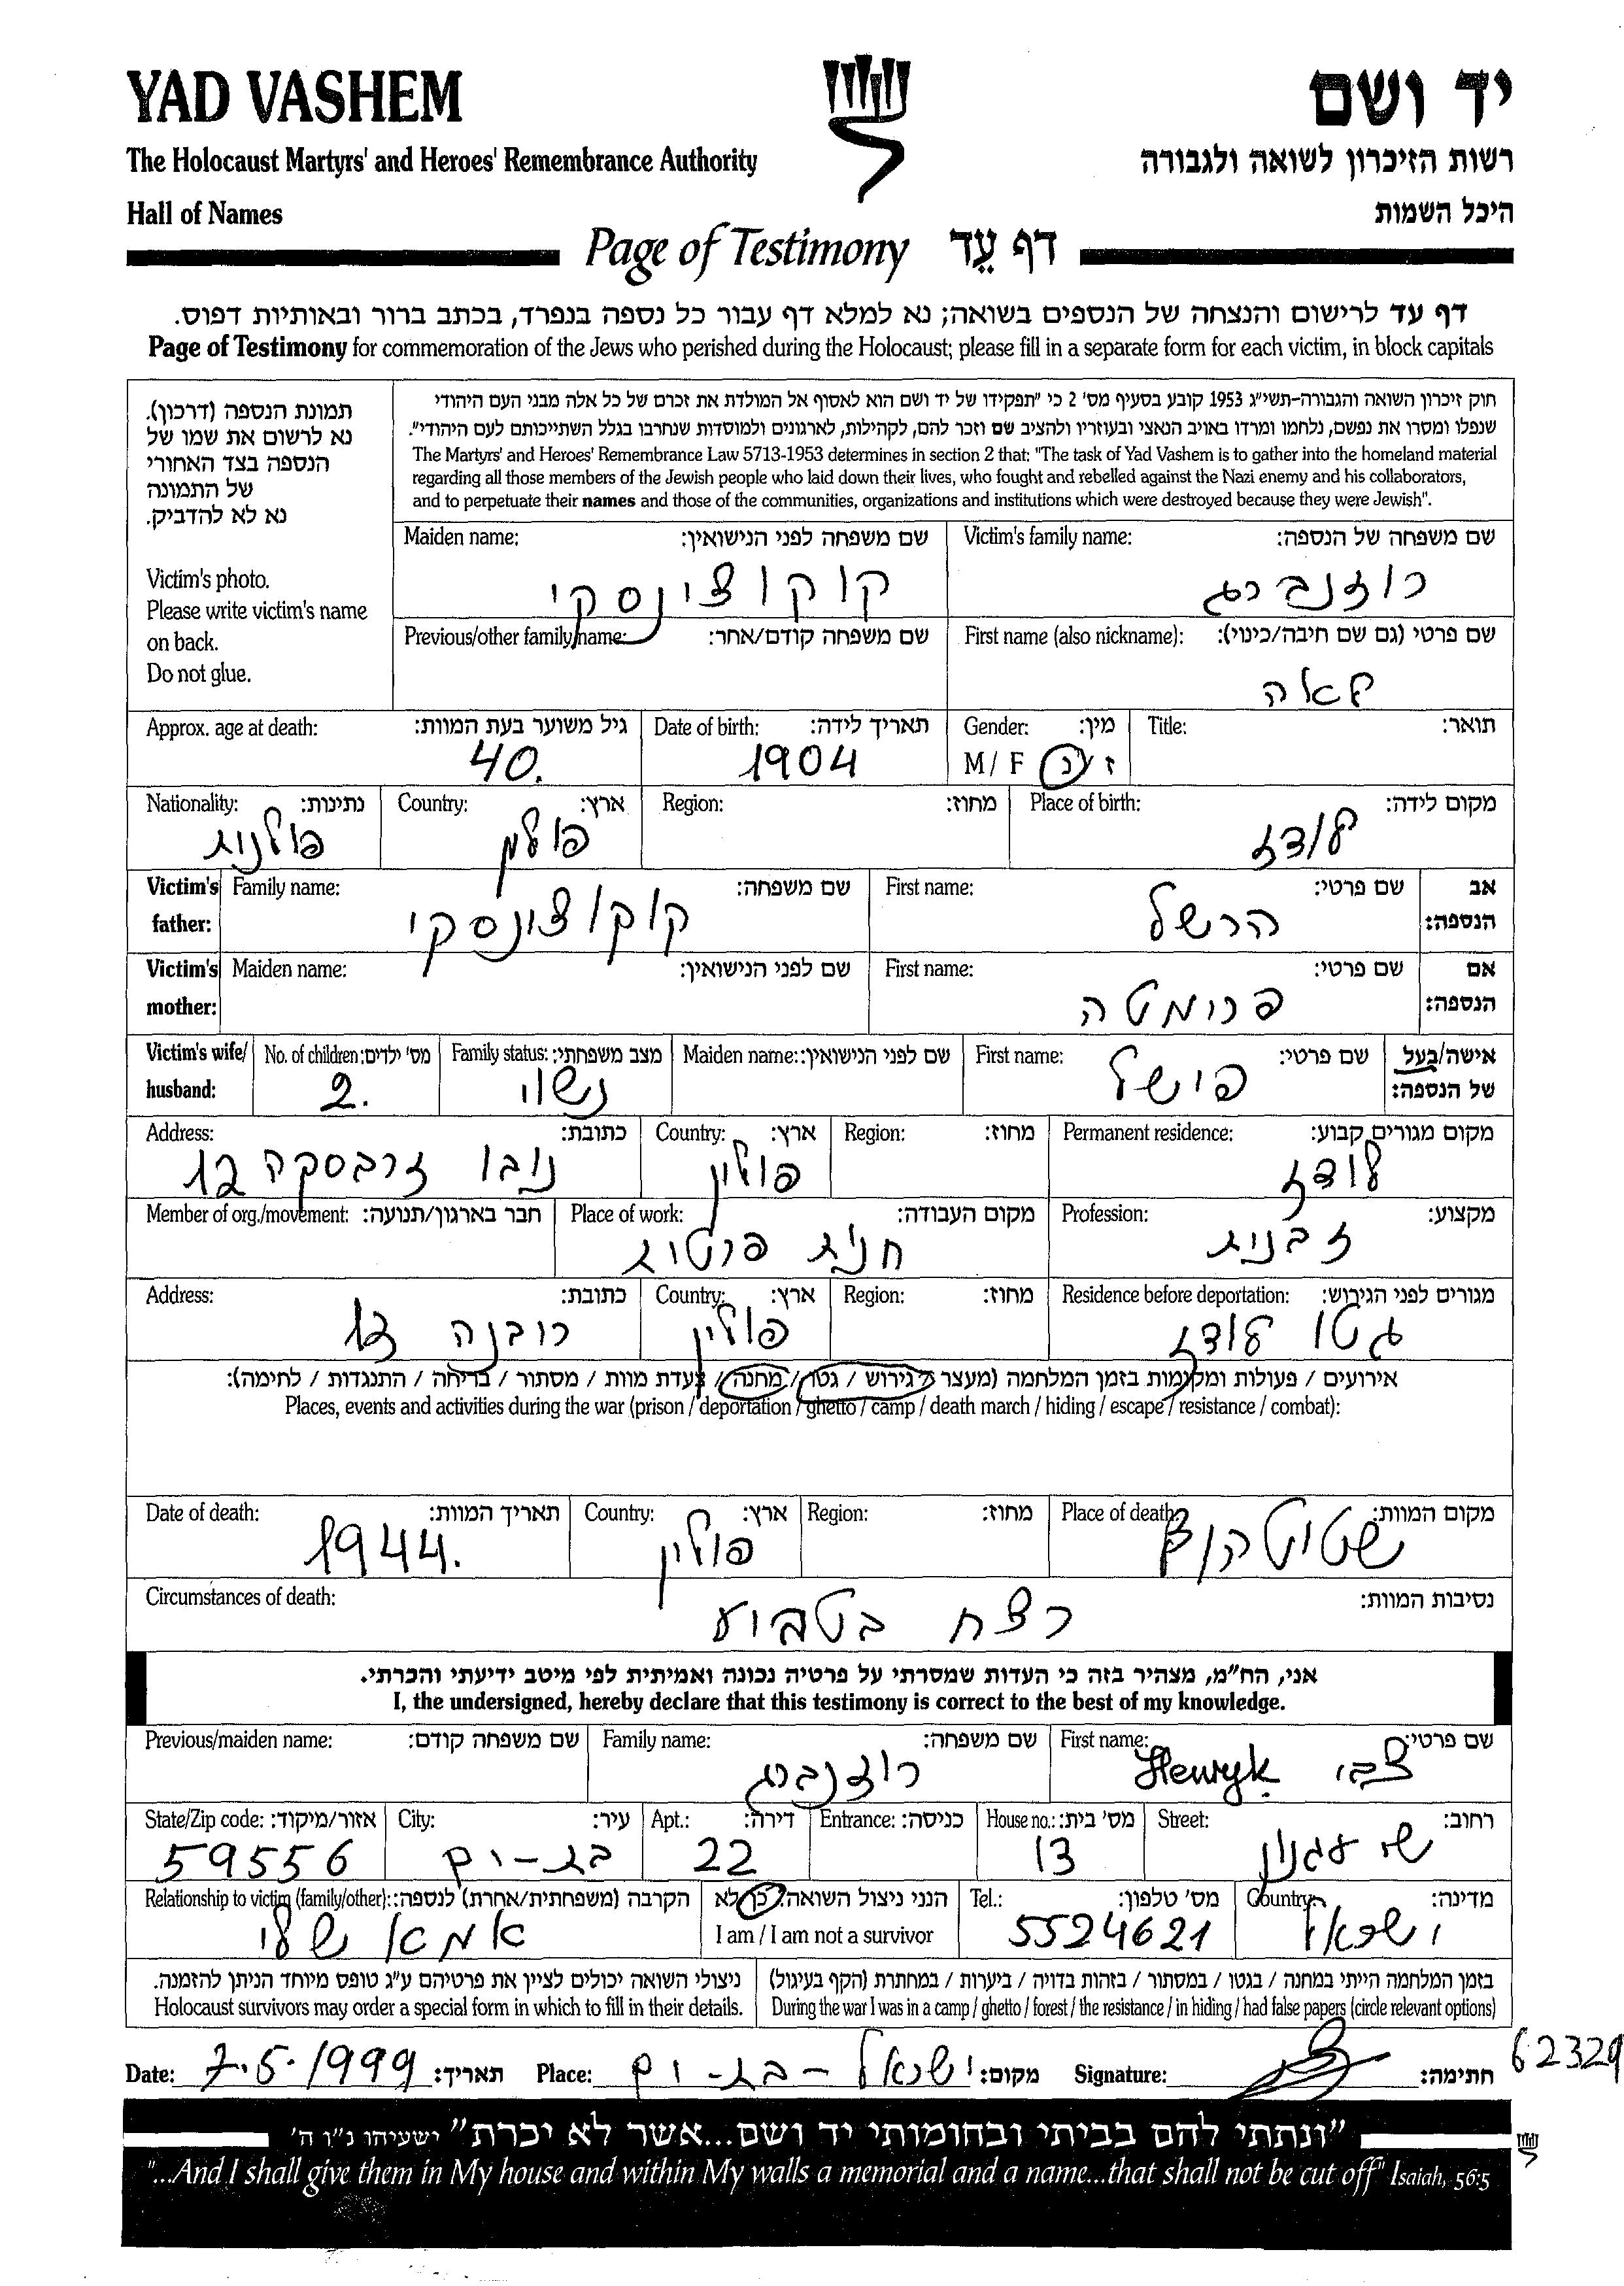 YAD VASHEM
יד ושם
The Holocaust Martyrs' and Heroes' Remembrance Authority
רשות הזיכרון לשואה ולגבורה
Hall of Names
היכל השמות
Page of Testimony דף עֵד
דף עד לרישום והנצחה של הנספים בשואה; נא למלא דף עבור כל נספה בנפרד, בכתב ברור ובאותיות דפוס.
Page of Testimony for commemoration of the Jews who perished during the Holocaust; please fill in a separate form for each victim, in block capitals
תמונת הנספה (דרכון).
נא לרשום את שמו של
הנספה בצד האחורי
של התמונה
נא לא להדביק.
Victim's photo.
Please write victim's name
on back.
Do not glue.
חוק זיכרון השואה והגבורה-תשי"ג 1953 קובע בסעיף מס' 2 כי "תפקידו של יד ושם הוא לאסוף אל המולדת את זכרם של כל אלה מבני העם היהודי
שנפלו ומסרו את נפשם, נלחמו ומרדו באויב הנאצי ובעוזריו ולהציב שם וזכר להם, לקהילות, לארגונים ולמוסדות שנחרבו בגלל השתייכותם לעם היהודי".
The Martyrs' and Heroes' Remembrance Law 5713-1953 determines in section 2 that: "The task of Yad Vashem is to gather into the homeland material
regarding all those members of the Jewish people who laid down their lives, who fought and rebelled against the Nazi enemy and his collaborators,
and to perpetuate their names and those of the communities, organizations and institutions which were destroyed because they were Jewish".
Victim's family name: שם משפחה של הנספה:
רוזנברג
Maiden name: שם משפחה לפני הנישואין:
קוקוצינסקי
First name (also nickname): שם פרטי (גם שם חיבה/כינוי):
Previous/other family name: שם משפחה קודם/אחר:
Title: תואר:
Gender: מין:
M / F ז / נ
Date of birth: תאריך לידה:
1904
Approx. age at death: גיל משוער בעת המוות:
40.
Place of birth: מקום לידה:
לודז
Region: מחוז:
Country: ארץ:
פולין
Nationality: נתינות:
פולנית
Victim's father: אב הנספה:
First name: שם פרטי:
הרשל
Family name: שם משפחה:
קוקוצינסקי
Victim's mother: אם הנספה:
First name: שם פרטי:
פרומטה
Maiden name: שם לפני הנישואין:
Victim's wife/ husband: אישה/בעל של הנספה:
First name: שם פרטי:
פישל
Maiden name: שם לפני הנישואין:
Family status: מצב משפחתי:
נשוי
No. of children: מס' ילדים:
2.
Permanent residence: מקום מגורים קבוע:
לודז
Region: מחוז:
Country: ארץ:
פולין
Address: כתובת:
נובו זרבסקה 12
Profession: מקצוע:
זבנית
Place of work: מקום העבודה:
חנות פרטית
Member of org./movement: חבר בארגון/תנועה:
Residence before deportation: מגורים לפני הגירוש:
גטו לודז
Region: מחוז:
Country: ארץ:
פולין
Address: כתובת:
רובנה 13
אירועים / פעולות ומקומות בזמן המלחמה (מעצר / גירוש / גטו / מחנה / צעדת מוות / מסתור / בריחה / התנגדות / לחימה):
Places, events and activities during the war (prison / deportation / ghetto / camp / death march / hiding / escape / resistance / combat):
Place of death: מקום המוות:
שטוטהוף
Region: מחוז:
Country: ארץ:
פולין
Date of death: תאריך המוות:
1944.
Circumstances of death: נסיבות המוות:
רצח בטביע
אני, הח"מ, מצהיר בזה כי העדות שמסרתי על פרטיה נכונה ואמיתית לפי מיטב ידיעתי והכרתי.
I, the undersigned, hereby declare that this testimony is correct to the best of my knowledge.
First name: שם פרטי:
צבי Henryk
Family name: שם משפחה:
רוזנברג
Previous/maiden name: שם משפחה קודם:
Street: רחוב:
שי עגנון
House no.: מס' בית:
13
Entrance: כניסה:
Apt.: דירה:
22
City: עיר:
בת-ים
State/Zip code: אזור/מיקוד:
59556
Country: מדינה:
ישראל
Tel.: מס' טלפון:
5524621
הנני ניצול השואה: כן / לא
I am / I am not a survivor
Relationship to victim (family/other): הקרבה (משפחתית/אחרת) לנספה:
אמא שלי
בזמן המלחמה הייתי במחנה / בגטו / במסתור / בזהות בדויה / ביערות / במחתרת (הקף בעיגול)
During the war I was in a camp / ghetto / forest / the resistance / in hiding / had false papers (circle relevant options)
ניצולי השואה יכולים לציין את פרטיהם ע"ג טופס מיוחד הניתן להזמנה.
Holocaust survivors may order a special form in which to fill in their details.
Date: 7.5.1999 תאריך: Place: ישראל - בת-ים מקום: Signature: חתימה:
62329
"ונתתי להם בביתי ובחומותי יד ושם...אשר לא יכרת" ישעיהו נ"ו ה'
"...And I shall give them in My house and within My walls a memorial and a name...that shall not be cut off" Isaiah, 56:5